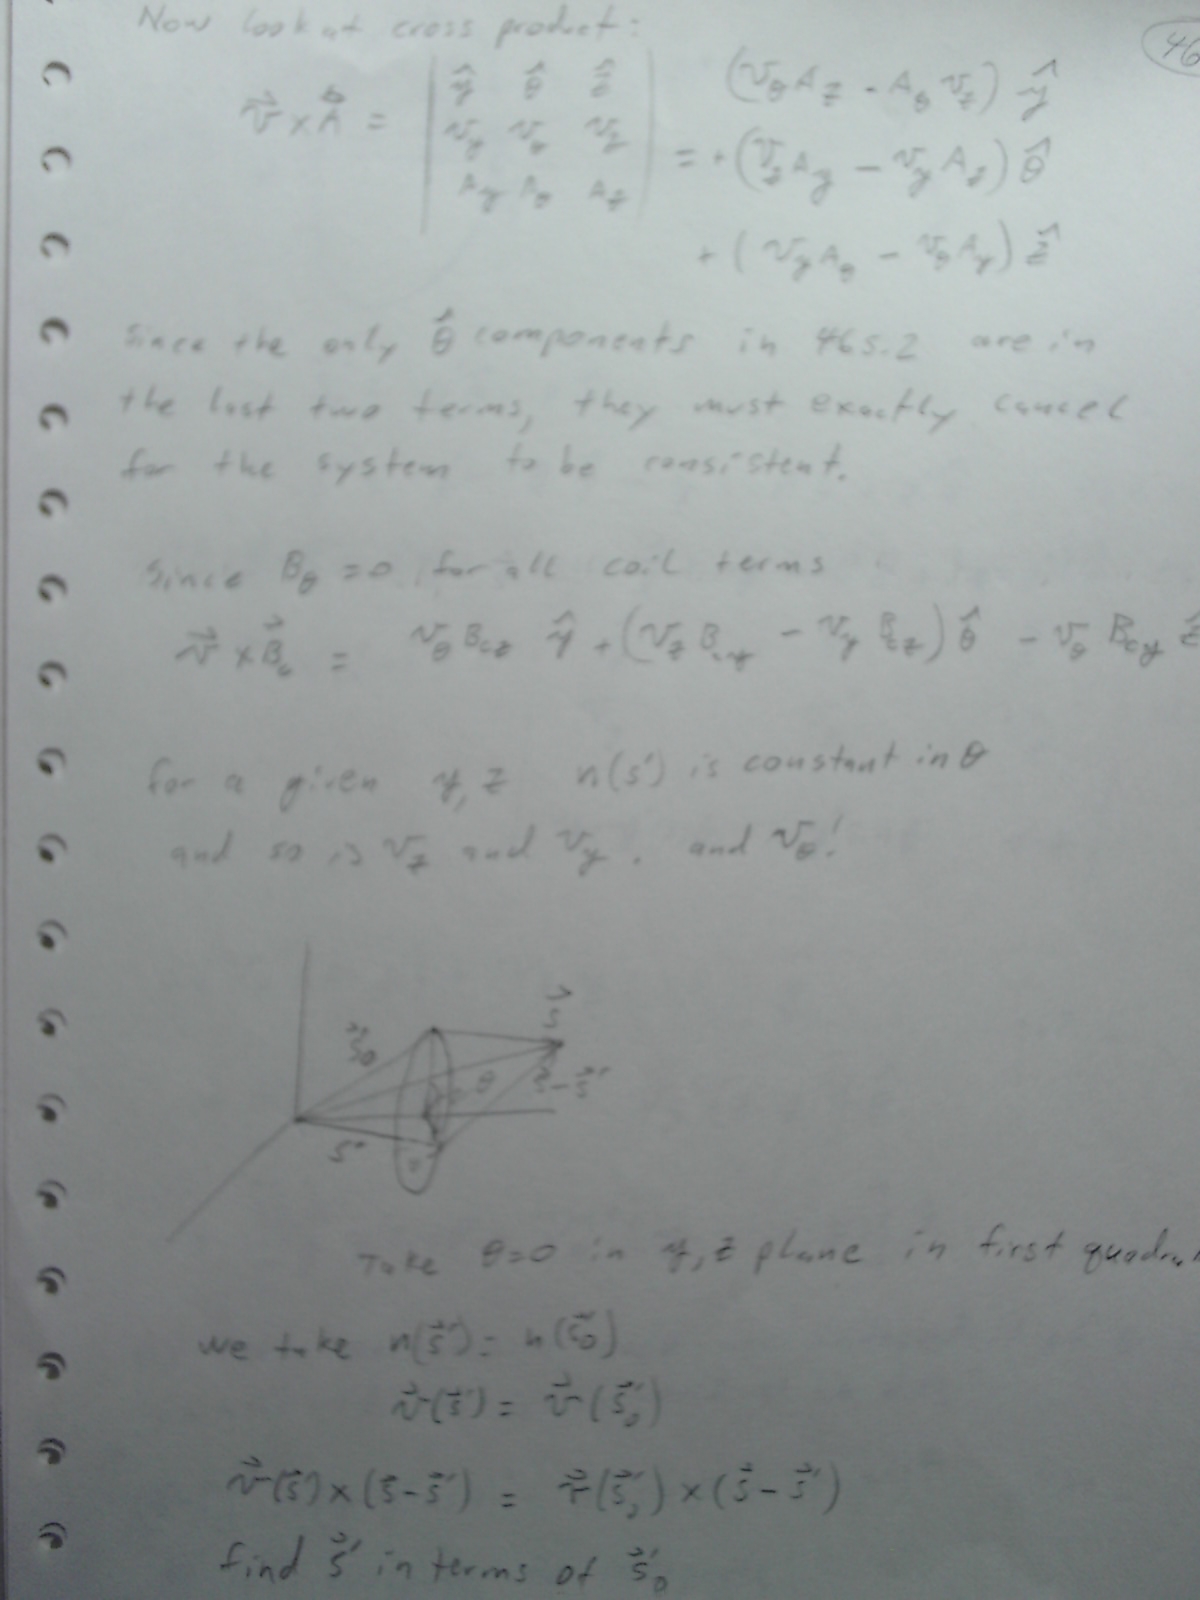 Now look at cross product:
46
v⃗ × A⃗ = | ŷ θ̂ ẑ |
| v_y v_θ v_z |
| A_y A_θ A_z |
(v_θ A_z - A_θ v_z) ŷ
= + (v_z A_y - v_y A_z) θ̂
+ (v_y A_θ - v_θ A_y) ẑ
Since the only θ̂ components in 465.2 are in
the last two terms, they must exactly cancel
for the system to be consistent.
Since B_θ = 0 for all coil terms
v⃗ × B⃗_c = v_θ B_cz ŷ + (v_z B_cy - v_y B_cz) θ̂ - v_θ B_cy ẑ
for a given y, z n(s') is constant in θ
and so is v_z and v_y. and v_θ!
s⃗
s⃗'_0
θ
s⃗ - s⃗'
s'
Take θ=0 in y, z plane in first
we take n(s⃗') = n(s⃗'_0)
v⃗(s⃗') = v⃗(s⃗'_0)
v⃗(s⃗') × (s⃗ - s⃗') = v⃗(s⃗'_0) × (s⃗ - s⃗')
find s⃗' in terms of s⃗'_0